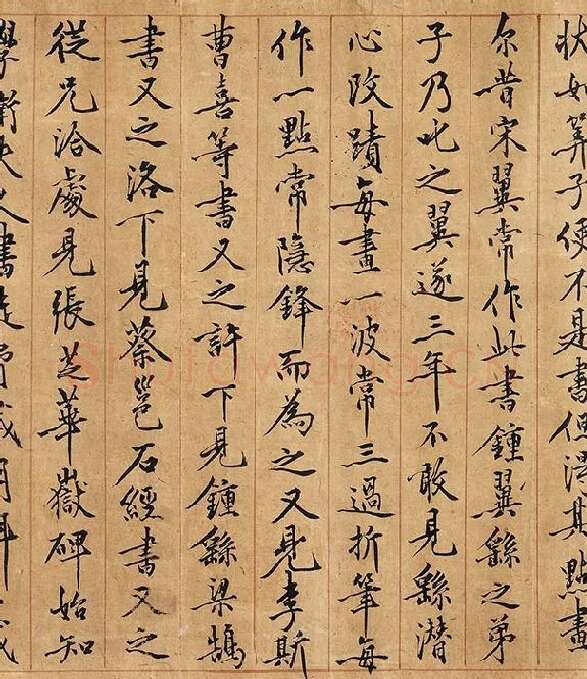 狀如筭子便不是書但得其點畫
尔昔宋翼常作此書鍾翼繇之弟
子乃叱之翼遂三年不敢見繇潛
心改蹟每畫一波常三過折筆每
作一點常隱鋒而為之又見李斯
曹喜等書又之許下見鍾繇梁鵠
書又之洛下見蔡邕石經書又之
從兄洽處見張芝華嶽碑始知